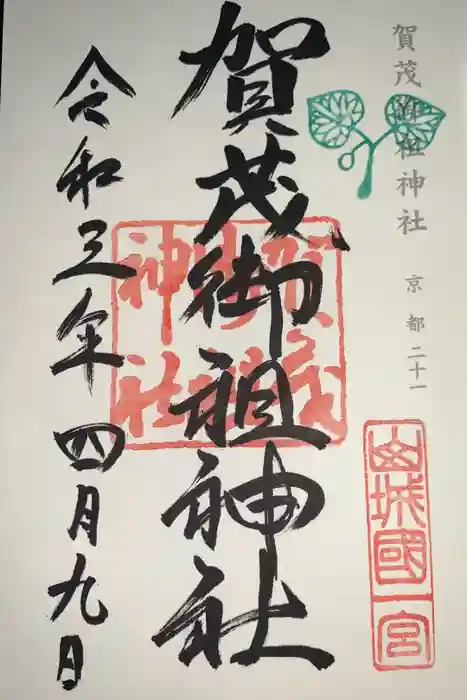 賀茂御祖神社
京都二十一
山城國一宮
賀茂御祖神社
賀茂御祖神社
令和三年四月九日